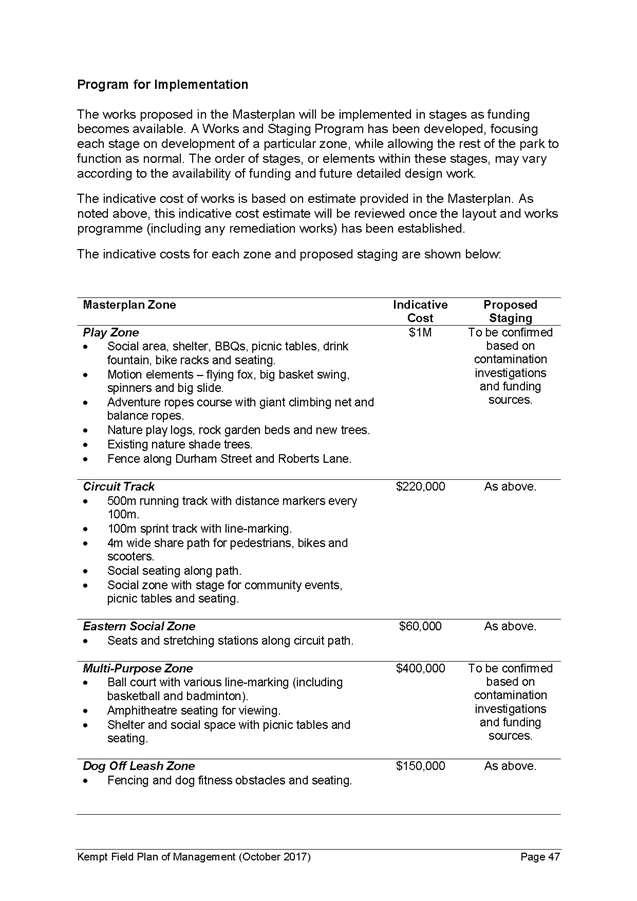 Program for Implementation
The works proposed in the Masterplan will be implemented in stages as funding
becomes available. A Works and Staging Program has been developed, focusing
each stage on development of a particular zone, while allowing the rest of the park to
function as normal. The order of stages, or elements within these stages, may vary
according to the availability of funding and future detailed design work.
The indicative cost of works is based on estimate provided in the Masterplan. As
noted above, this indicative cost estimate will be reviewed once the layout and works
programme (including any remediation works) has been established.
The indicative costs for each zone and proposed staging are shown below:
Masterplan Zone Indicative Proposed
Cost Staging
Play Zone $1M To be confirmed
• Social area, shelter, BBQs, picnic tables, drink based on
fountain, bike racks and seating. contamination
• Motion elements – flying fox, big basket swing, investigations
spinners and big slide. and funding
• Adventure ropes course with giant climbing net and sources.
balance ropes.
• Nature play logs, rock garden beds and new trees.
• Existing nature shade trees.
• Fence along Durham Street and Roberts Lane.
Circuit Track $220,000 As above.
• 500m running track with distance markers every
100m.
• 100m sprint track with line-marking.
• 4m wide share path for pedestrians, bikes and
scooters.
• Social seating along path.
• Social zone with stage for community events,
picnic tables and seating.
Eastern Social Zone $60,000 As above.
• Seats and stretching stations along circuit path.
Multi-Purpose Zone $400,000 To be confirmed
• Ball court with various line-marking (including based on
basketball and badminton). contamination
• Amphitheatre seating for viewing. investigations
• Shelter and social space with picnic tables and and funding
seating. sources.
Dog Off Leash Zone $150,000 As above.
• Fencing and dog fitness obstacles and seating.
Kempt Field Plan of Management (October 2017) Page 47